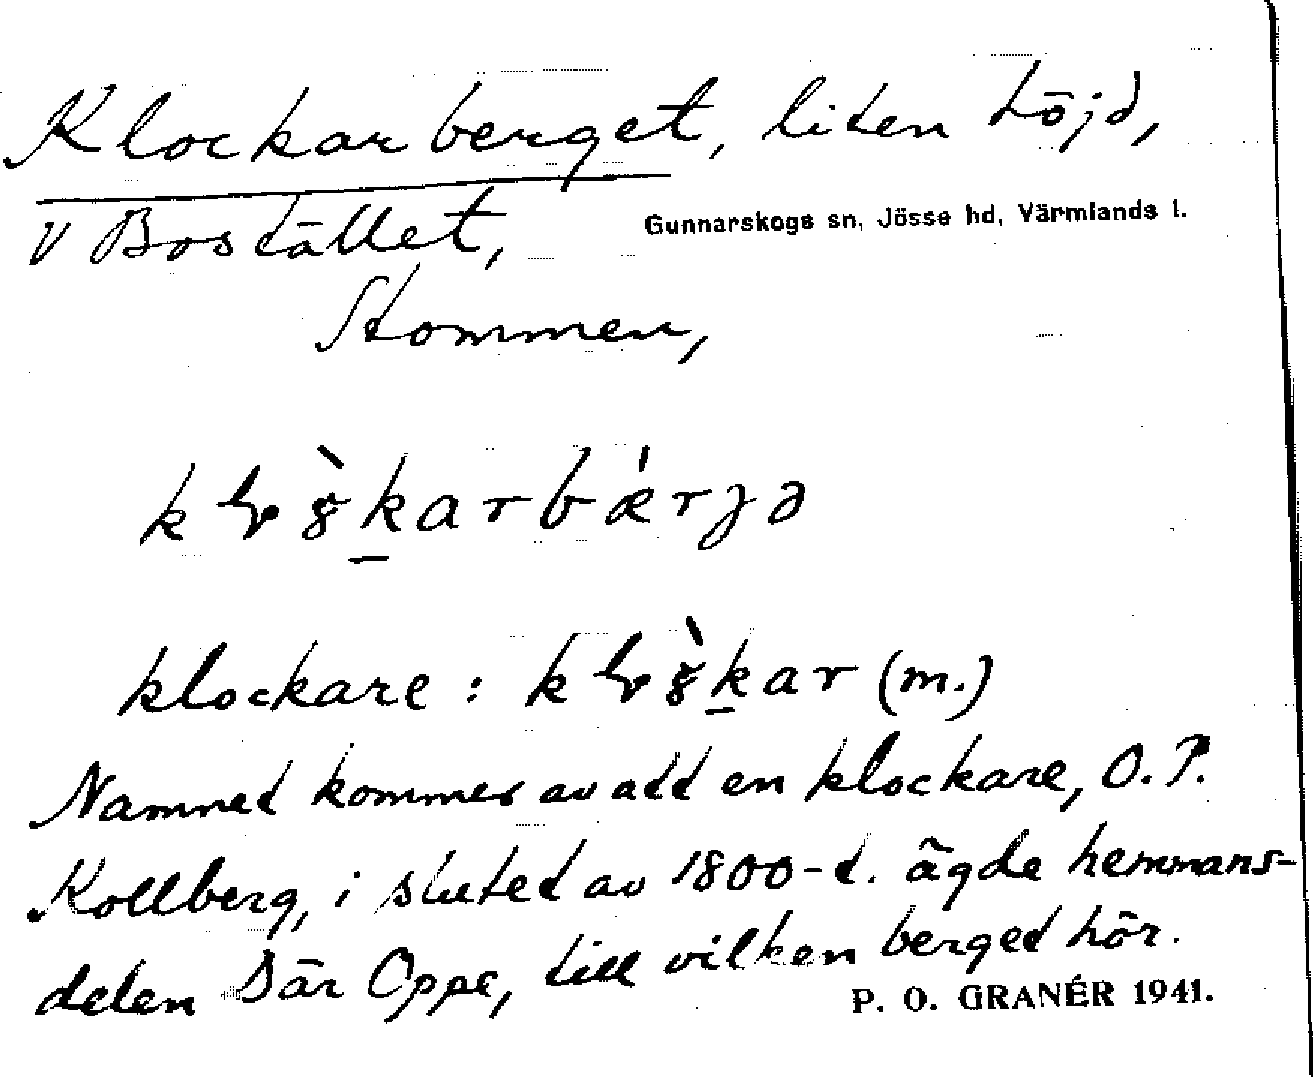 Klockarberget, liten höjd,
v Bostället,
Gunnarskogs sn, Jösse hd, Värmlands l.
Stommen,
klockare : (m.)
Namnet kommer av att en klockare, O. P.
Kollberg, i slutet av 1800-t. ägde hemmans-
delen Där Oppe, till vilken berget hör.
P. O. GRANÉR 1941.